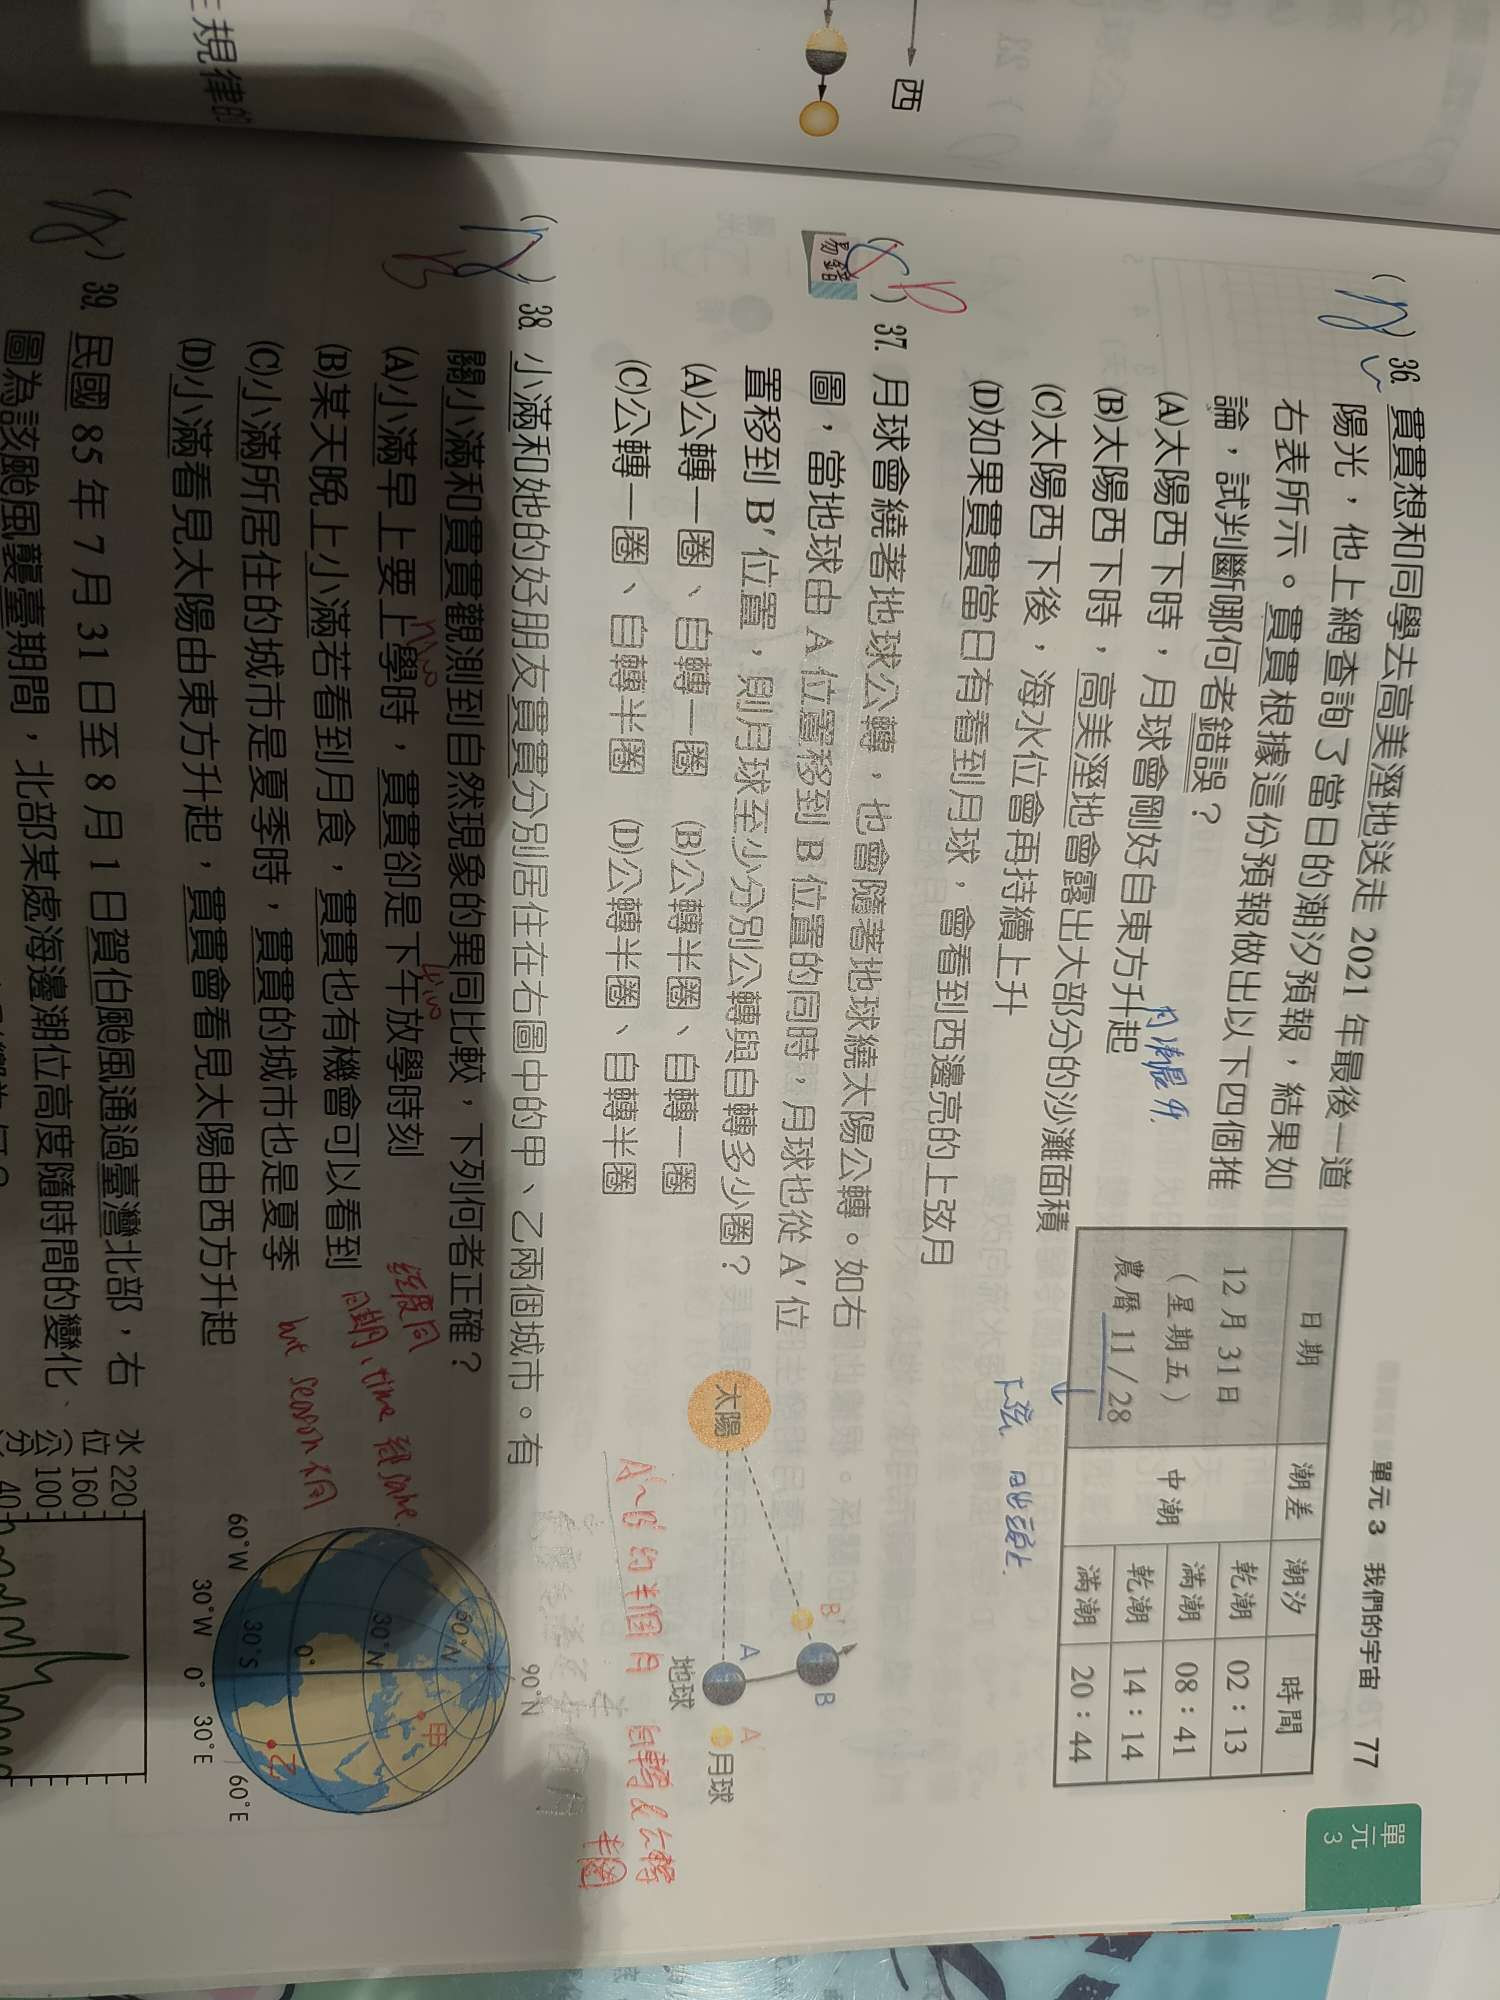 西
單元 3 我們的宇宙 77
單元
3
36. 貫貫想和同學去高美溼地送走 2021 年最後一道
陽光，他上網查詢了當日的潮汐預報，結果如
右表所示。貫貫根據這份預報做出以下四個推
論，試判斷哪何者錯誤？
(A)太陽西下時，月球會剛好自東方升起
(B)太陽西下時，高美溼地會露出大部分的沙灘面積
(C)太陽西下後，海水位會再持續上升
(D)如果貫貫當日有看到月球，會看到西邊亮的上弦月
日期 潮差 潮汐 時間
12 月 31 日
（星期五）
農曆 11 / 28
中潮
乾潮 02：13
滿潮 08：41
乾潮 14：14
滿潮 20：44
下弦
易錯
37. 月球會繞著地球公轉，也會隨著地球繞太陽公轉。如右
圖，當地球由 A 位置移到 B 位置的同時，月球也從 A′ 位
置移到 B′ 位置，則月球至少分別公轉與自轉多少圈？
(A)公轉一圈、自轉一圈 (B)公轉半圈、自轉一圈
(C)公轉一圈、自轉半圈 (D)公轉半圈、自轉半圈
太陽
B′
B
A
地球
A′
月球
A'~B' 約半個月 自轉&公轉
半圈
38. 小滿和她的好朋友貫貫分別居住在右圖中的甲、乙兩個城市。有
關小滿和貫貫觀測到自然現象的異同比較，下列何者正確？
(A)小滿早上要上學時，貫貫卻是下午放學時刻
(B)某天晚上小滿若看到月食，貫貫也有機會可以看到
(C)小滿所居住的城市是夏季時，貫貫的城市也是夏季
(D)小滿看見太陽由東方升起，貫貫會看見太陽由西方升起
經度同
日期、time 都same.
but season不同
90°N
60°N
30°N
0°
30°S
甲
乙
60°W 30°W 0° 30°E 60°E
39. 民國 85 年 7 月 31 日至 8 月 1 日賀伯颱風通過臺灣北部，右
圖為該颱風襲臺期間，北部某處海邊潮位高度隨時間的變化
水
位
公
分
220
160
100
40